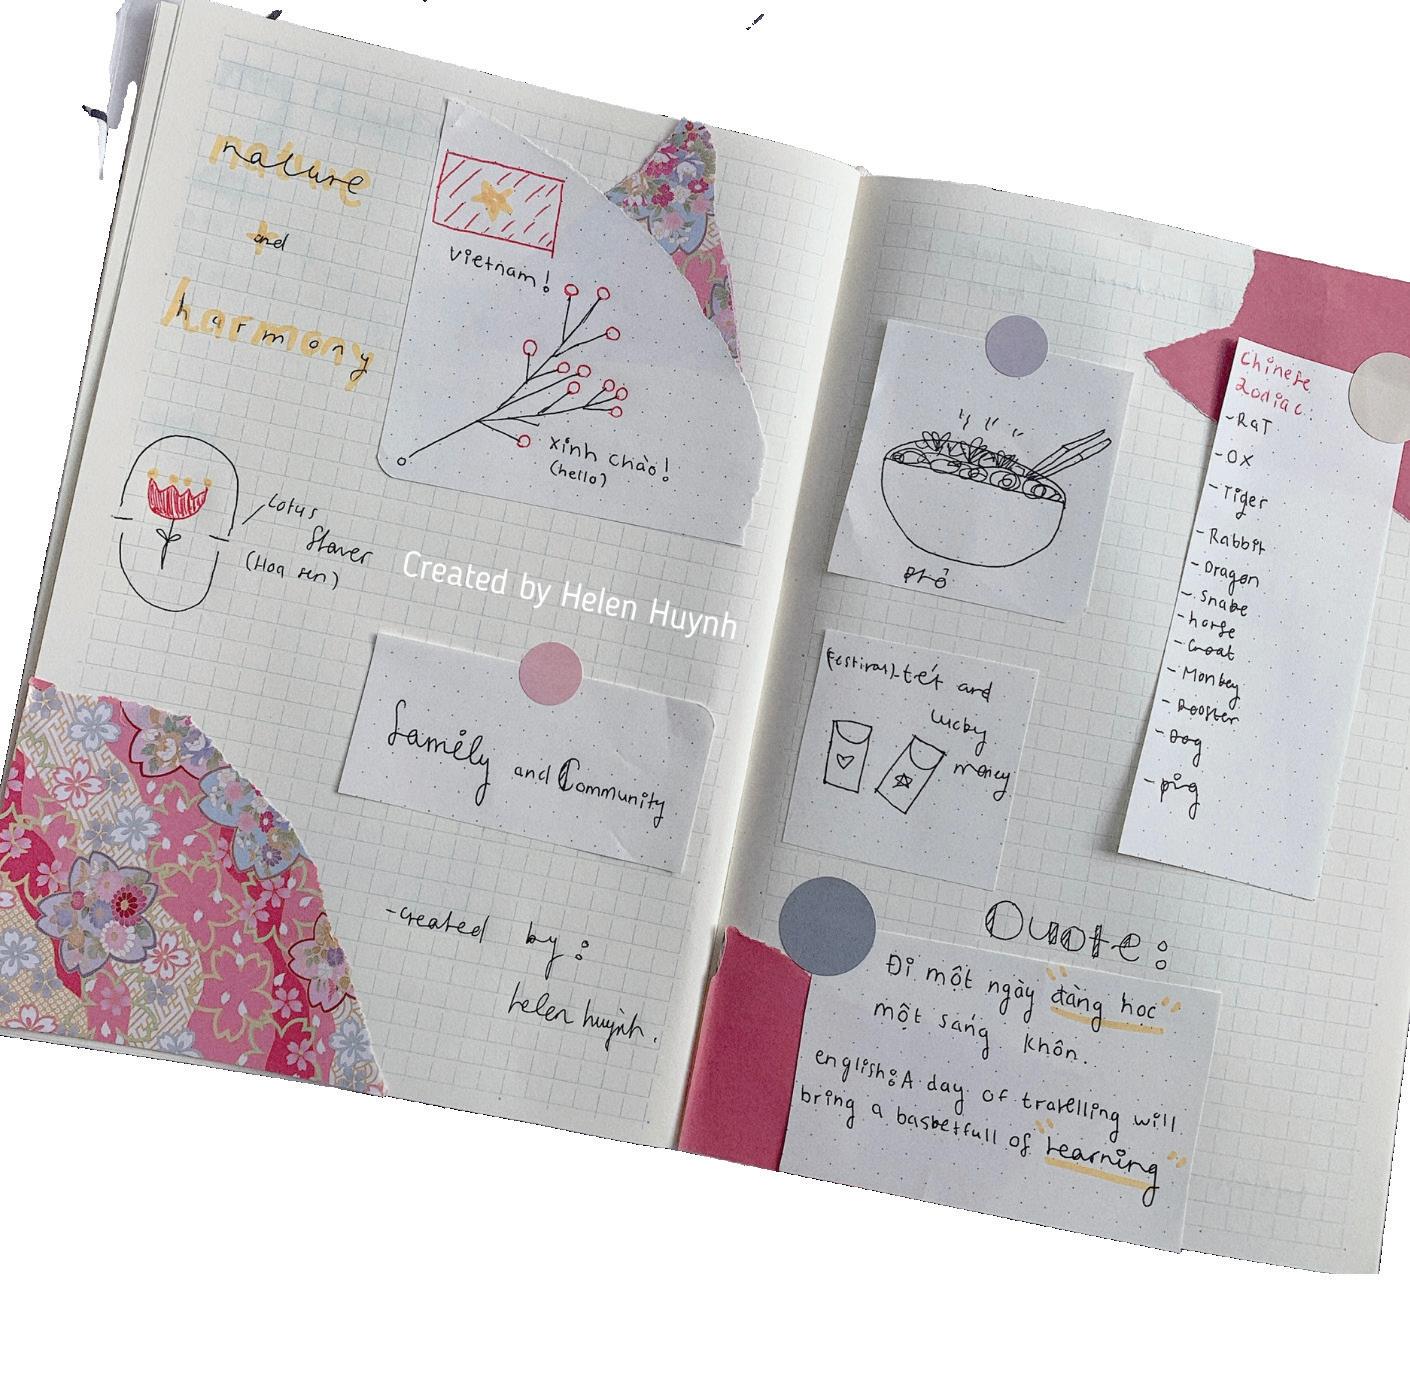 nature
and
harmony
Vietnam!
xinh chào!
(hello)
Lotus
flower
(Hoa sen)
Created by Helen Huynh
family and Community
-created by:
helen huỳnh.
phở
(festival)-tết and
lucky
money
Chinese
Zodiac:
-RaT
-OX
-Tiger
-Rabbit
-Dragon
-Snake
-horse
-Goat
-Monkey
-Rooster
-Dog
-pig
Quote:
Đi một ngày "đàng học"
một sáng khôn.
english: A day of travelling will
bring a basketfull of "learning"